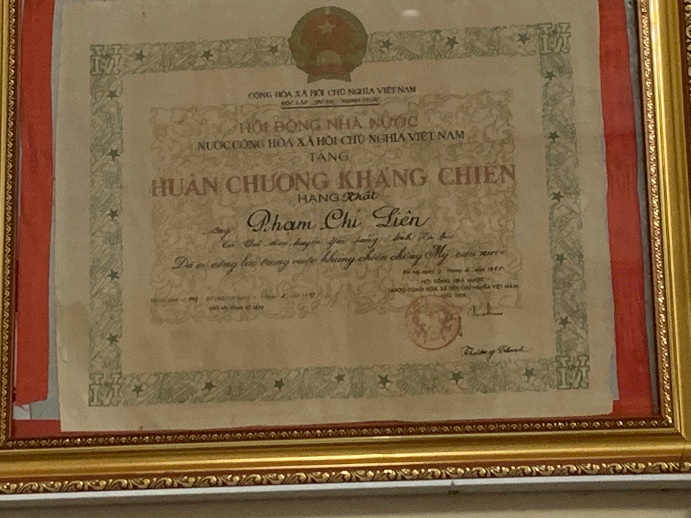 CỘNG HÒA XÃ HỘI CHỦ NGHĨA VIỆT NAM
ĐỘC LẬP - TỰ DO - HẠNH PHÚC
HỘI ĐỒNG NHÀ NƯỚC
NƯỚC CỘNG HÒA XÃ HỘI CHỦ NGHĨA VIỆT NAM
TẶNG
HUÂN CHƯƠNG KHÁNG CHIẾN
HẠNG Nhất
Ông Phạm Chí Liên
Đã có công lao trong cuộc kháng chiến chống Mỹ, cứu nước
HỘI ĐỒNG NHÀ NƯỚC
NƯỚC CỘNG HÒA XÃ HỘI CHỦ NGHĨA VIỆT NAM
CHỦ TỊCH
Trường Chinh